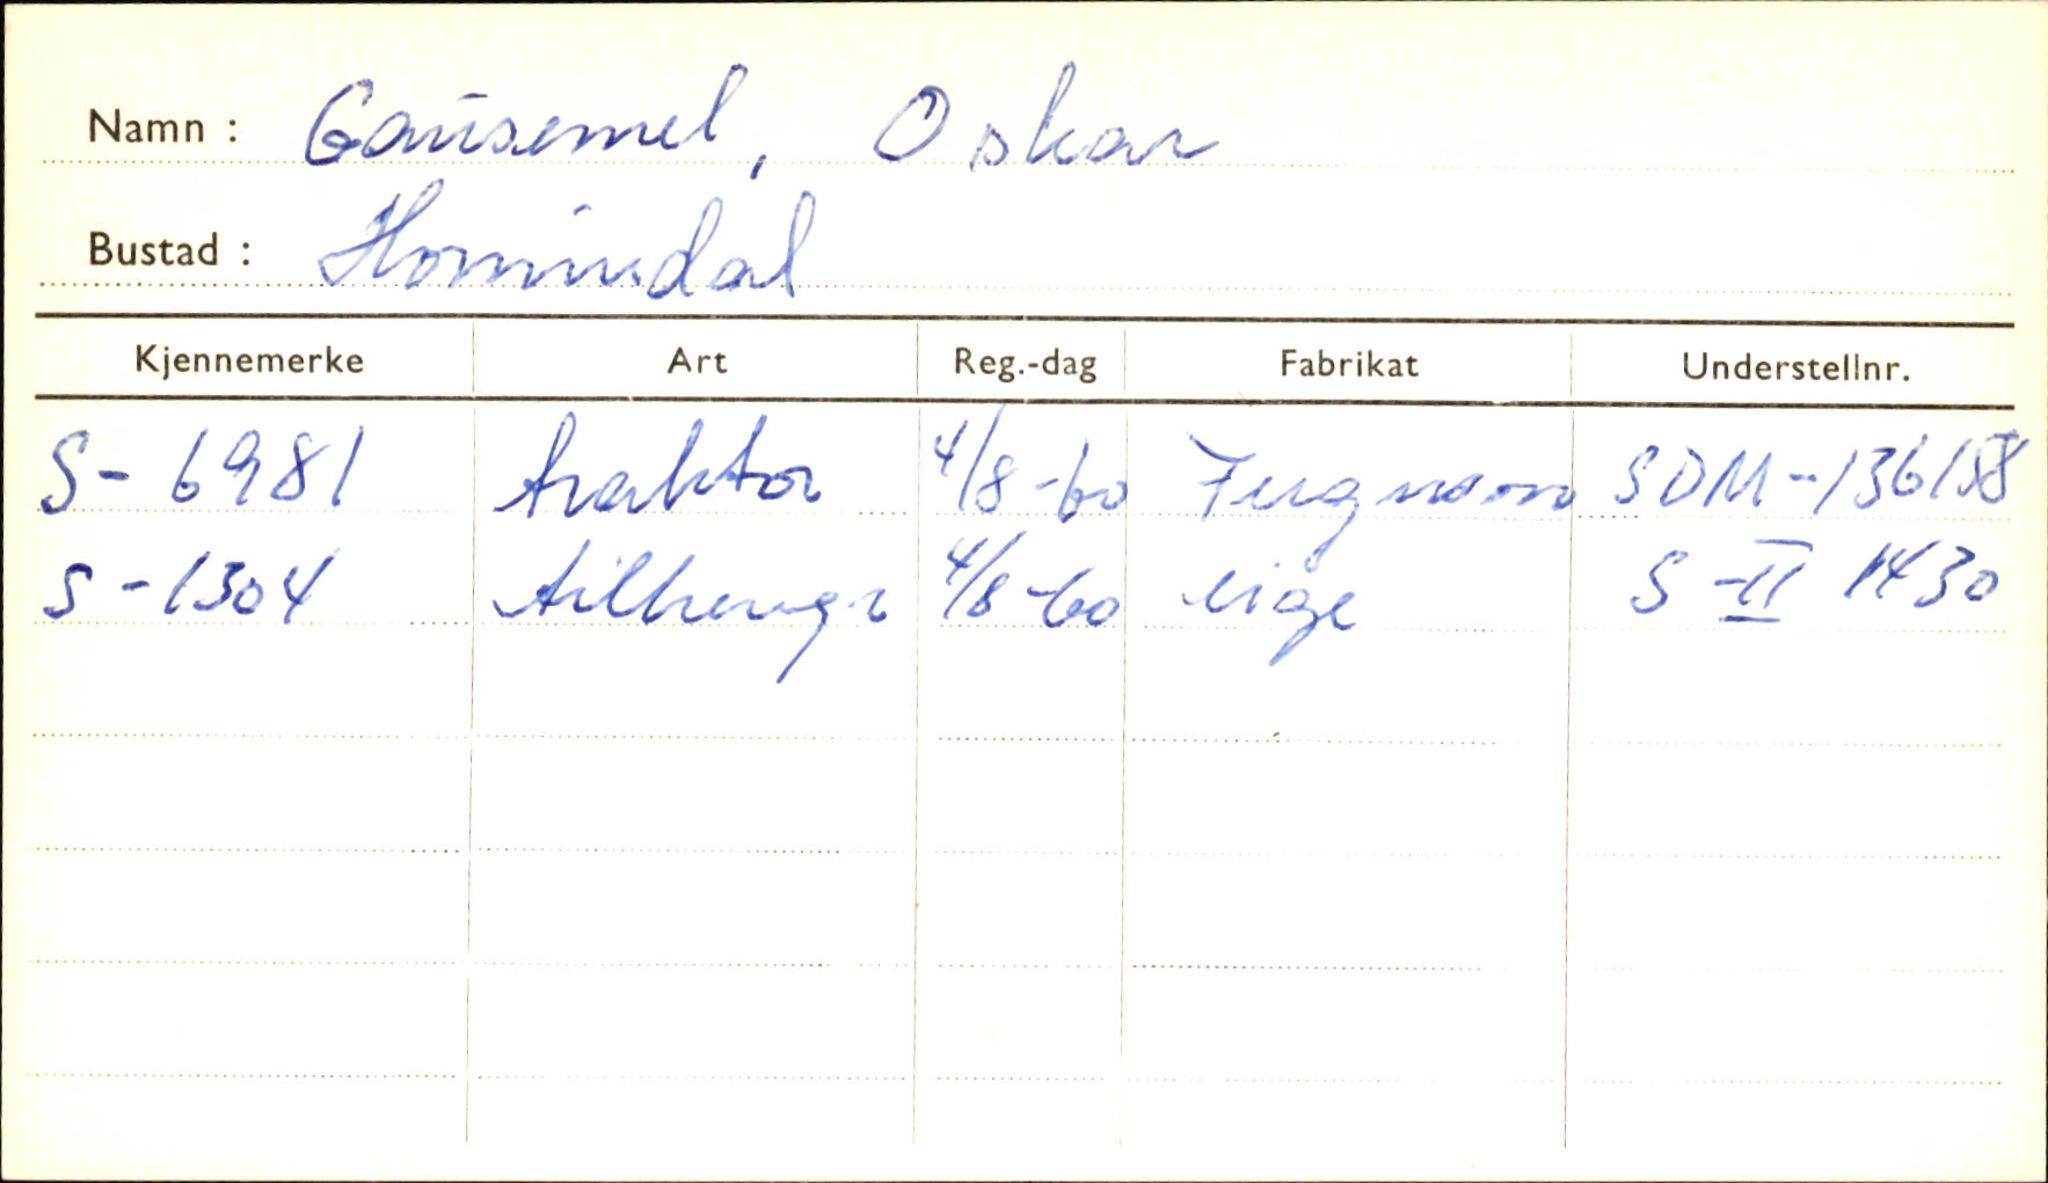 Namn : Gausemel, Oskar
Bustad : Hornindal
Kjennemerke Art Reg.-dag Fabrikat Understellnr.
S-6981 traktor 4/8-60 Ferguson SDM-136158
S-1304 tilhengr 4/8-60 eige S-II 1430